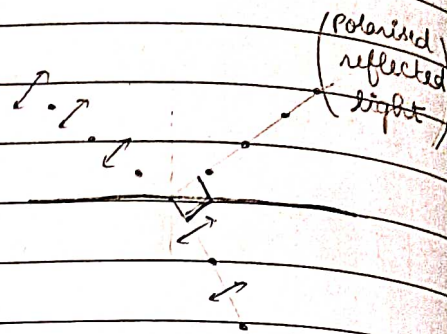 (Polarised)
reflected
light